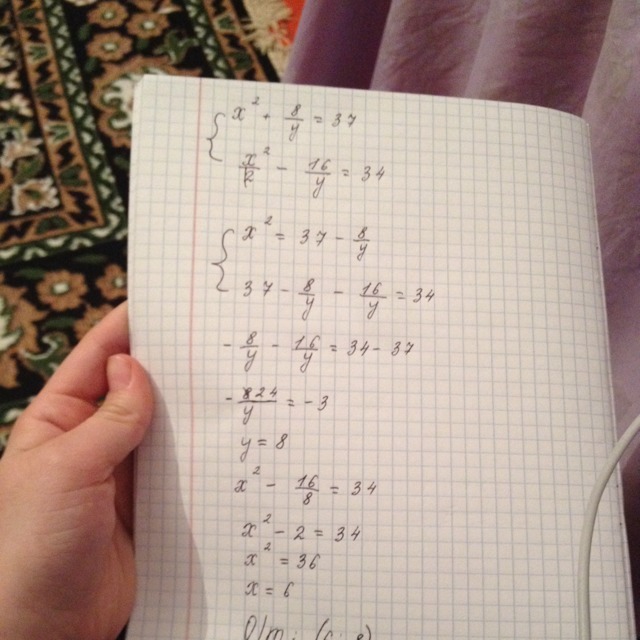 x² + 8/y = 37
x² - 16/y = 34
x² = 37 - 8/y
37 - 8/y - 16/y = 34
- 8/y - 16/y = 34 - 37
- 24/y = -3
y = 8
x² - 16/8 = 34
x² - 2 = 34
x² = 36
x = 6